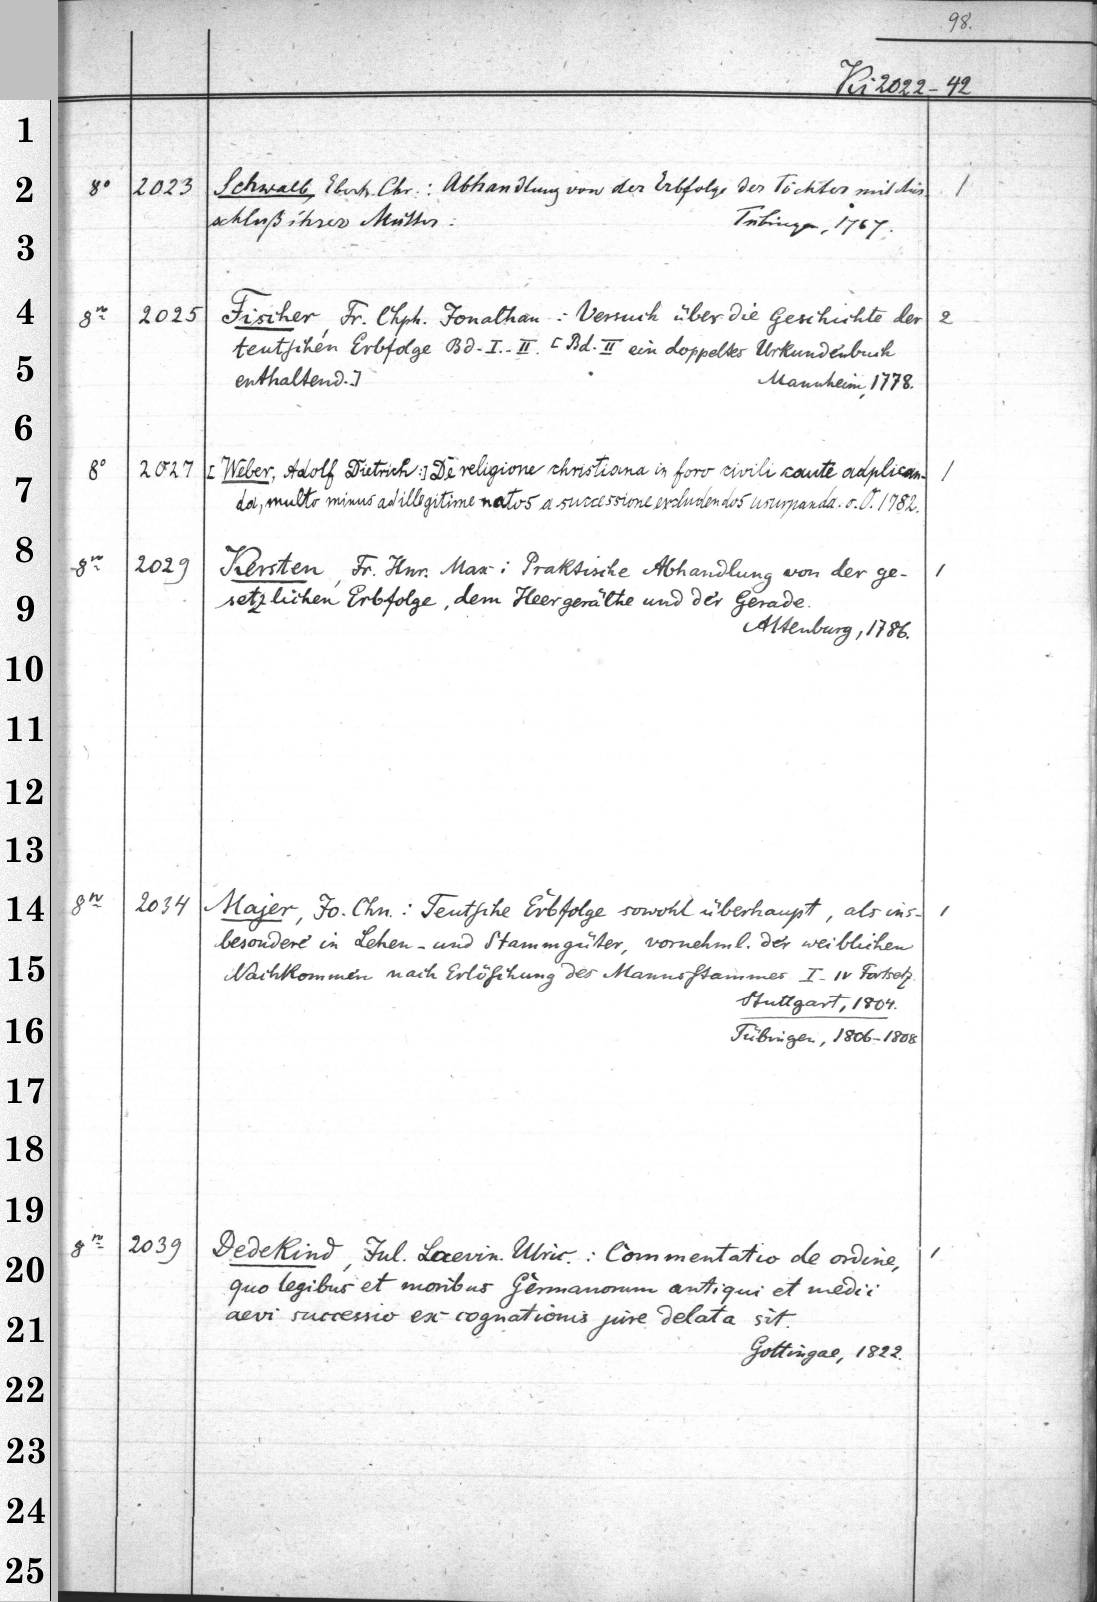 98.
Ki 2022-42
1
2 8° 2023 Schwalb, Eberh. Chr.: Abhandlung von der Erbfolge der Töchter mit Aus- 1
schluß ihrer Mutter: Tübingen, 1767.
3
4 8° 2025 Fischer, Fr. Chph. Jonathan: Versuch über die Geschichte der 2
teutschen Erbfolge Bd. I.-II. [Bd. II ein doppeltes Urkundenbuch
5 enthaltend.] Mannheim, 1778.
6
8° 2027 [Weber, Adolf Dietrich:] De religione christiana in foro civili caute adplican- 1
7 da, multo minus ad illegitime natos a successione excludendos usurpanda. o.O. 1782.
8 8n 2029 Kersten, Fr. Hnr. Max: Praktische Abhandlung von der ge- 1
9 setzlichen Erbfolge, dem Heergeräthe und der Gerade.
Altenburg, 1786.
10
11
12
13
14 8n 2034 Majer, Jo. Chn.: Teutsche Erbfolge sowohl überhaupt, als ins- 1
besondere in Lehen- und Stammgüter, vornehml. der weiblichen
15 Nachkommen nach Erlöschung des Mannsstammes I-IV Fortsetz.
Stuttgart, 1804.
16 Tübingen, 1806-1808
17
18
19
8n 2039 Dedekind, Jul. Laevin. Ulric.: Commentatio de ordine, 1
20 quo legibus et moribus Germanorum antiqui et medii
21 aevi successio ex cognationis jure delata sit.
Gottingae, 1822.
22
23
24
25